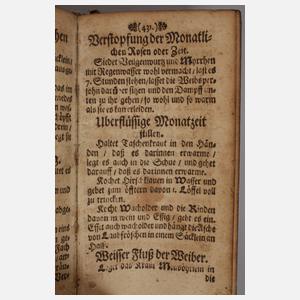 (431.)
Verstopfung der Monatli-
chen Rosen oder Zeit.
Siedet Beugenwurtz und Myrrhen
mit Regenwasser wohl vermacht / last es
7. Stunden stehen / lasset die Weibsper-
sohn darüber sitzen und den Dampff un-
ten zu ihr gehen / so wohl und so warm
als sie es kan erleiden.
Uberflüßige Monatzeit
stillen.
Haltet Taschenkraut in den Hän-
den / daß es darinnen erwarme /
legt es auch in die Schue / und gehet
darauff / daß es darinnen erwarme.
Kochet Hirschklauen in Wasser und
gebet zum öfftern davon 1. Löffel voll
zu trucken.
Kocht Wacholder und die Rinden
davon in wein und Essig / gebt es ein.
Essig auch wacholder und hängt die
von Laubfröschen in einem Säcklein an
Halß.
Weisser Fluß der Weiber.
Leget das Kraut in
die